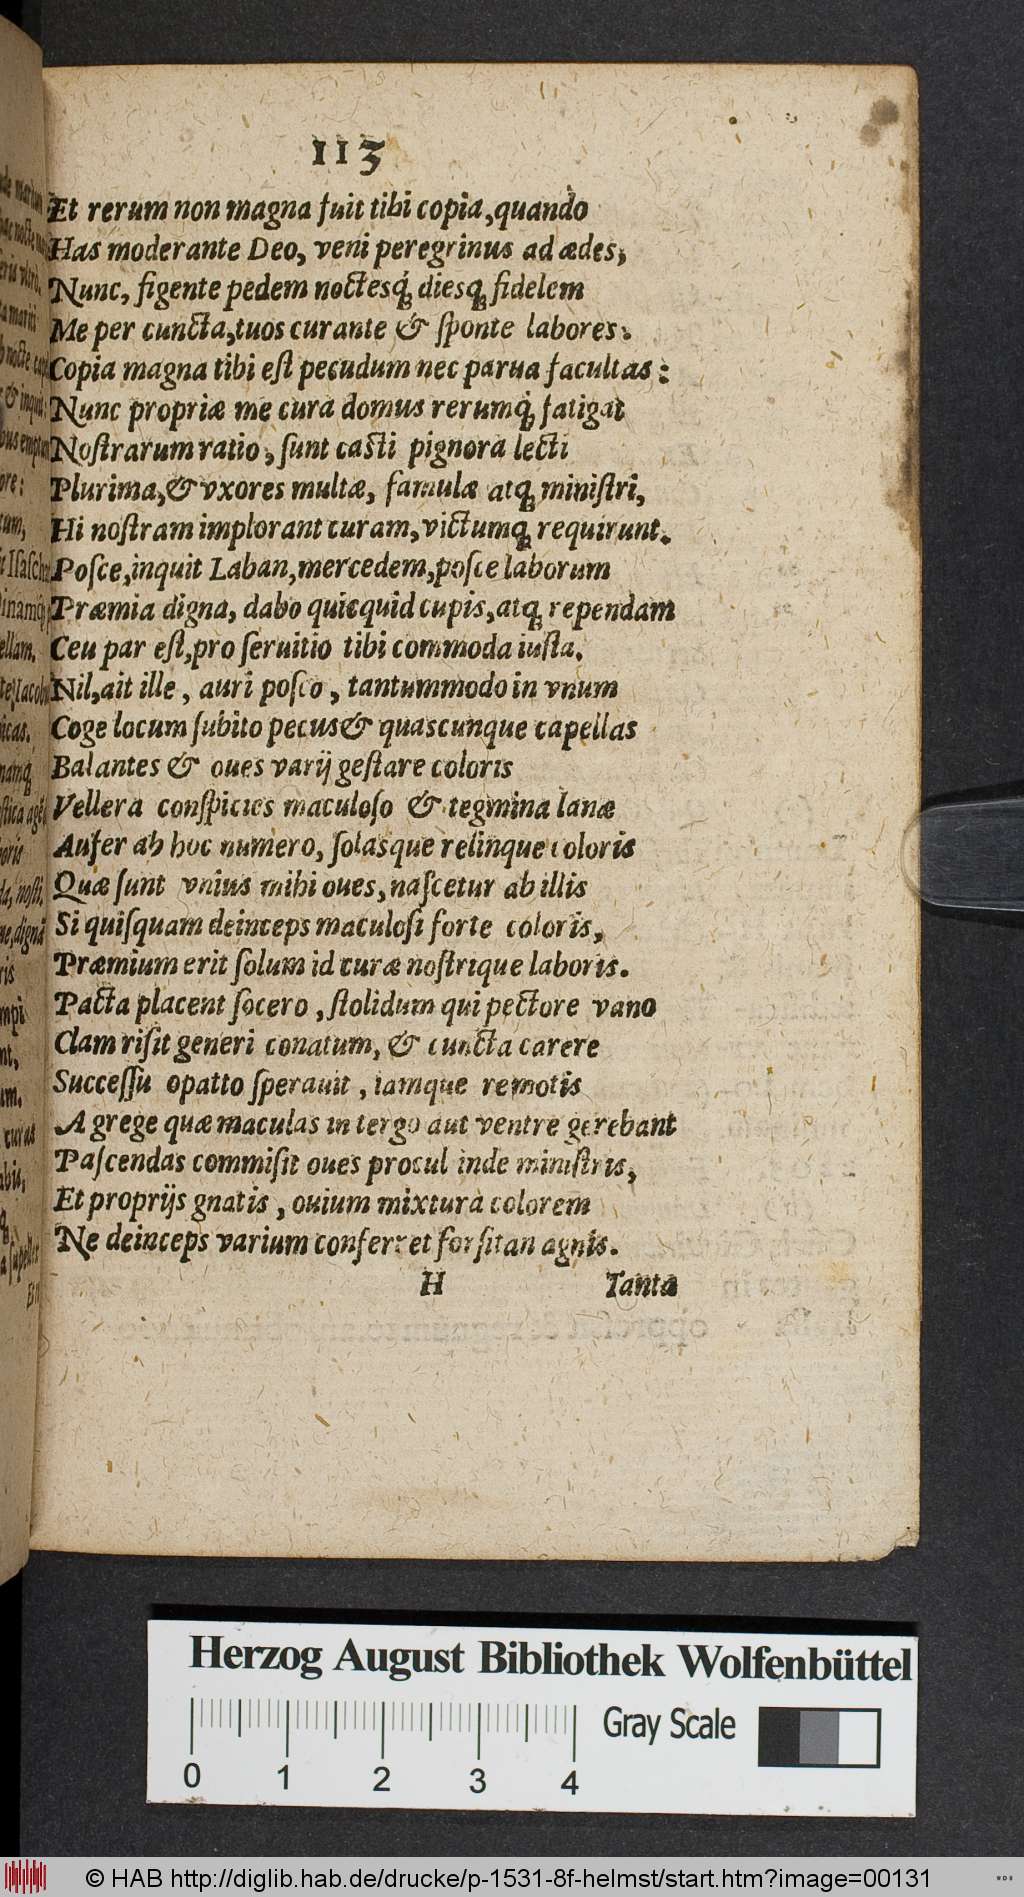 113
Et rerum non magna fuit tibi copia, quando
Has moderante Deo, veni peregrinus ad ædes;
Nunc, figente pedem noctesq́; diesq; fidelem
Me per cuncta, tuos curante & ſponte labores.
Copia magna tibi eſt pecudum nec parua facultas:
Nunc propriæ me cura domus rerumq́; fatigat
Noſtrarum ratio, ſunt caſti pignora lecti
Plurima, & vxores multæ, famulæ atq; miniſtri,
Hi noſtram implorant curam, victumq; requirunt.
Poſce, inquit Laban, mercedem, poſce laborum
Præmia digna, dabo quicquid cupis, atq; rependam
Ceu par eſt, pro ſeruitio tibi commoda iuſta.
Nil, ait ille, auri poſco, tantummodo in vnum
Coge locum ſubito pecus & quascunque capellas
Balantes & oues varij geſtare coloris
Vellera conſpicies maculoſo & tegmina lanæ
Aufer ab hoc numero, ſolasque relinque coloris
Quæ ſunt vnius mihi oues, naſcetur ab illis
Si quiſquam deinceps maculoſi forte coloris,
Præmium erit ſolum id curæ noſtrique laboris.
Pacta placent ſocero, ſtolidum qui pectore vano
Clam riſit generi conatum, & cuncta carere
Succeſſu opatto ſperauit, iamque remotis
A grege quæ maculas in tergo aut ventre gerebant
Paſcendas commiſit oues procul inde miniſtris,
Et proprijs gnatis, ouium mixtura colorem
Ne deinceps varium conferret forſitan agnis.
H Tanta
Herzog August Bibliothek Wolfenbüttel
Gray Scale
0 1 2 3 4
© HAB http://diglib.hab.de/drucke/p-1531-8f-helmst/start.htm?image=00131